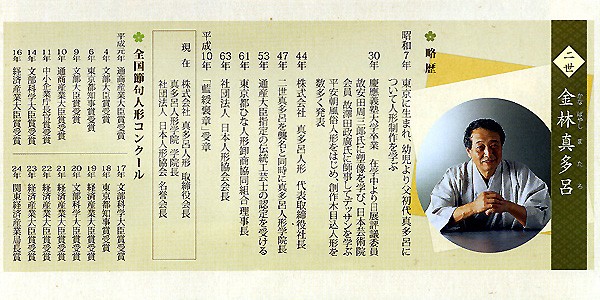 二世
かなばやし ま た ろ
金林真多呂
略歴
昭和7年 東京に生まれ、幼児より父初代真多呂に
ついて人形制作を学ぶ
30年 慶應義塾大学卒業 在学中より日展評議委員
故安田周三郎氏に塑像を学び、日本芸術院
会員 故澤田政廣氏に師事してデッサンを学ぶ
平安朝風俗人形をはじめ、創作木目込人形を
数多く発表
44年 株式会社 真多呂人形 代表取締役社長
47年 二世真多呂を襲名と同時に真多呂人形学院長
53年 通産大臣指定の伝統工芸士の認定を受ける
61年 東京都ひな人形卸商協同組合 理事長
63年 社団法人 日本人形協会会長
平成10年 「藍綬褒章」受章
現在 株式会社 真多呂人形 取締役会長
真多呂人形学院 学院長
社団法人 日本人形協会 名誉会長
全国節句人形コンクール
平成元年 通商産業大臣賞受賞
4年 文部大臣賞受賞
6年 東京都知事賞受賞
9年 文部大臣賞受賞
10年 通商産業大臣賞受賞
11年 中小企業庁長官賞受賞
14年 文部科学大臣賞受賞
16年 経済産業大臣賞受賞
17年 文部科学大臣賞受賞
18年 東京都知事賞受賞
19年 経済産業大臣賞受賞
20年 文部科学大臣賞受賞
21年 経済産業大臣賞受賞
22年 経済産業大臣賞受賞
23年 経済産業大臣賞受賞
24年 関東経済産業局長賞